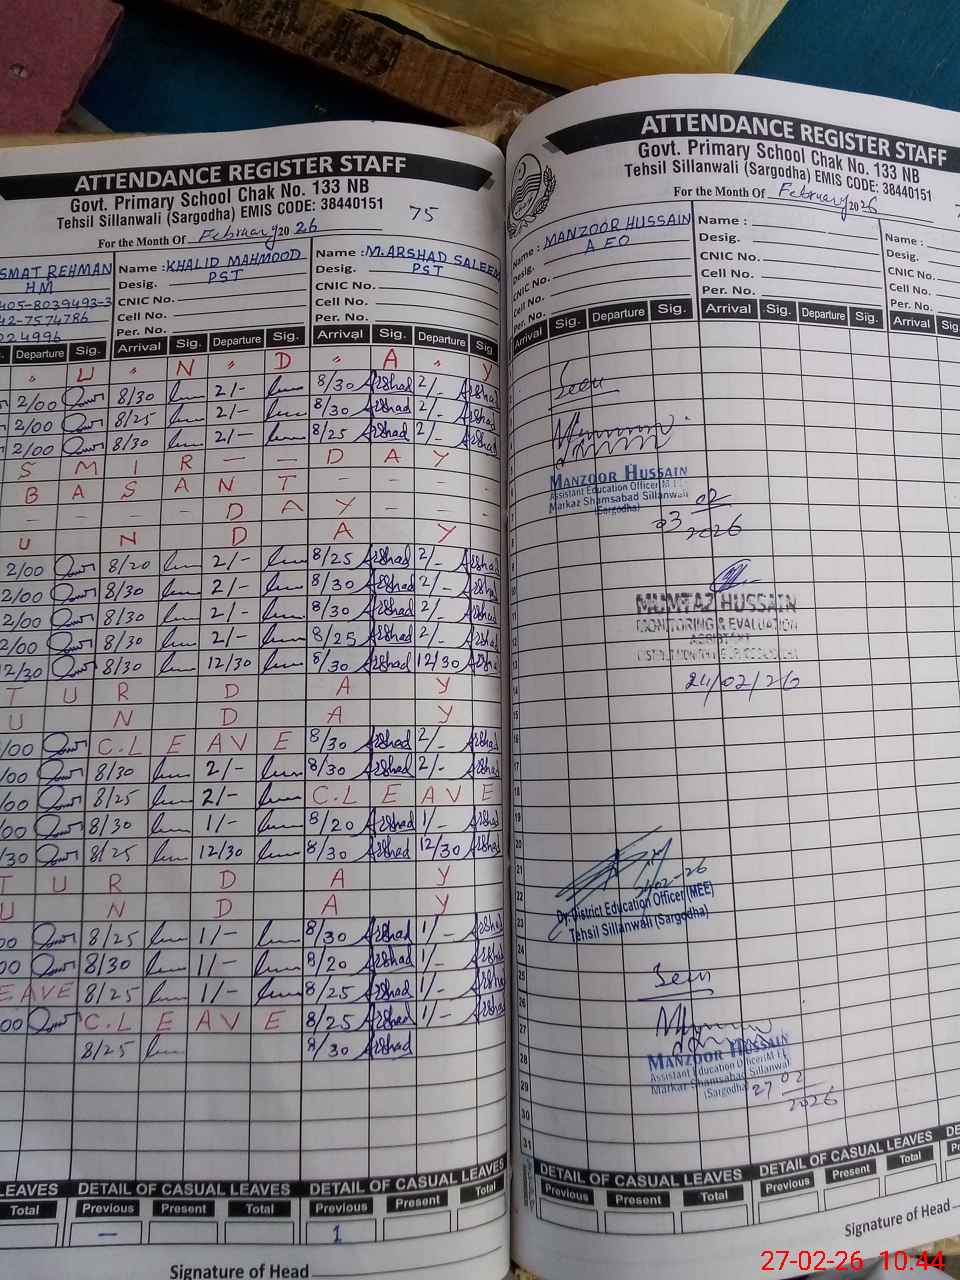 ATTENDANCE REGISTER STAFF
Govt. Primary School Chak No. 133 NB
Tehsil Sillanwali (Sargodha) EMIS CODE: 38440151
75
For the Month Of February 20 26
SMAT REHMAN
HM
405-8039493-3
42-7574786
224996
Name : KHALID MAHMOOD
Desig. PST
CNIC No.
Cell No.
Per. No.
Name : M. ARSHAD SALEEM
Desig. PST
CNIC No.
Cell No.
Per. No.
Departure Sig. Arrival Sig. Departure Sig. Arrival Sig. Departure Sig
" U " N " D " A " Y
2/00 8/30 2/- 8/30 Arshad 2/- Arshad
2/00 8/25 2/- 8/30 Arshad 2/- Arshad
2/00 8/30 2/- 8/25 Arshad 2/- Arshad
S M I R — — D A Y
B A S A N T - - - -
- - - - D A Y - - -
U N D A Y
2/00 8/20 2/- 8/25 Arshad 2/- Arshad
2/00 8/30 2/- 8/30 Arshad 2/- Arshad
2/00 8/30 2/- 8/30 Arshad 2/- Arshad
2/00 8/30 2/- 8/25 Arshad 2/- Arshad
12/30 8/30 12/30 8/30 Arshad 12/30 Arshad
T U R D A Y
U N D A Y
/00 C.L E AV E 8/30 Arshad 2/- Arshad
/00 8/30 2/- 8/30 Arshad 2/- Arshad
/00 8/25 2/- C.L E AV E
/00 8/30 1/- 8/20 Arshad 1/- Arshad
/30 8/25 12/30 8/30 Arshad 12/30 Arshad
T U R D A Y
U N D A Y
00 8/25 1/- 8/30 Arshad 1/- Arshad
00 8/30 1/- 8/20 Arshad 1/- Arshad
EAVE 8/25 1/- 8/25 Arshad 1/- Arshad
00 C.L E AV E 8/25 Arshad 1/- Arshad
8/25 8/30 Arshad
LEAVES DETAIL OF CASUAL LEAVES DETAIL OF CASUAL LEAVES
Total Previous Present Total Previous Present Total
— 1
Signature of Head
ATTENDANCE REGISTER STAFF
Govt. Primary School Chak No. 133 NB
Tehsil Sillanwali (Sargodha) EMIS CODE: 38440151
For the Month Of February 2026
7
Name : MANZOOR HUSSAIN
Desig. A EO
CNIC No.
Cell No.
Per. No.
Name :
Desig.
CNIC No.
Cell No.
Per. No.
Name :
Desig.
CNIC No.
Cell No.
Per. No.
Arrival Sig. Departure Sig. Arrival Sig. Departure Sig. Arrival
Seen
MANZOOR HUSSAIN
Assistant Education Officer M EE
Markaz Shamsabad Sillanwali
(Sargodha)
03 02
2026
MUMTAZ HUSSAIN
MONITORING & EVALUATION
ASSISTANT
24/02/26
02-26
Dy. District Education Officer (MEE)
Tehsil Sillanwali (Sargodha)
Seen
MANZOOR HUSSAIN
Assistant Education Officer M EE
Markaz Shamsabad Sillanwal
(Sargodha)
27 02
2026
12
13
14
15
16
17
18
19
20
21
22
23
24
25
26
27
28
29
30
31
DETAIL OF CASUAL LEAVES DETAIL OF CASUAL LEAVES DE
Previous Present Total Previous Present Total
Signature of Head
27-02-26 10:44